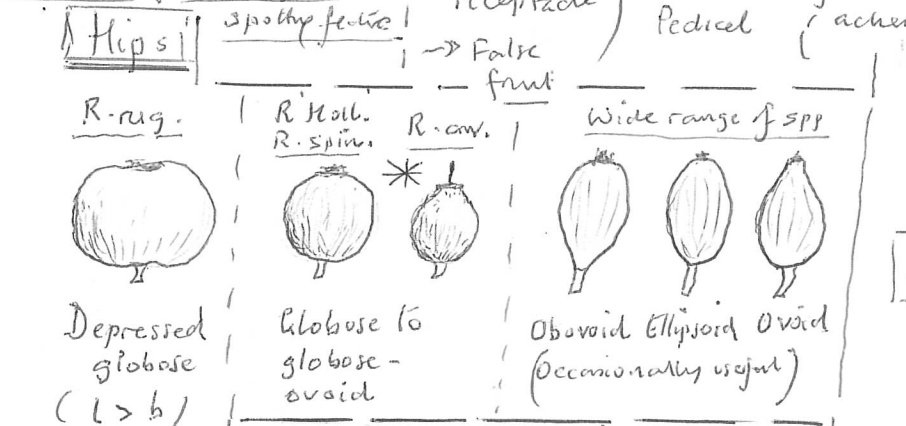 Hips
spotty
Receptacle
→ False
fruit
Pedicel
achen
R. rug.
R Holl.
R. spin.
R. arv.
Wide range of spp
Depressed
globose
(l > b)
Globose to
globose-
ovoid
Obovoid Ellipsoid Ovoid
(Occasionally useful)